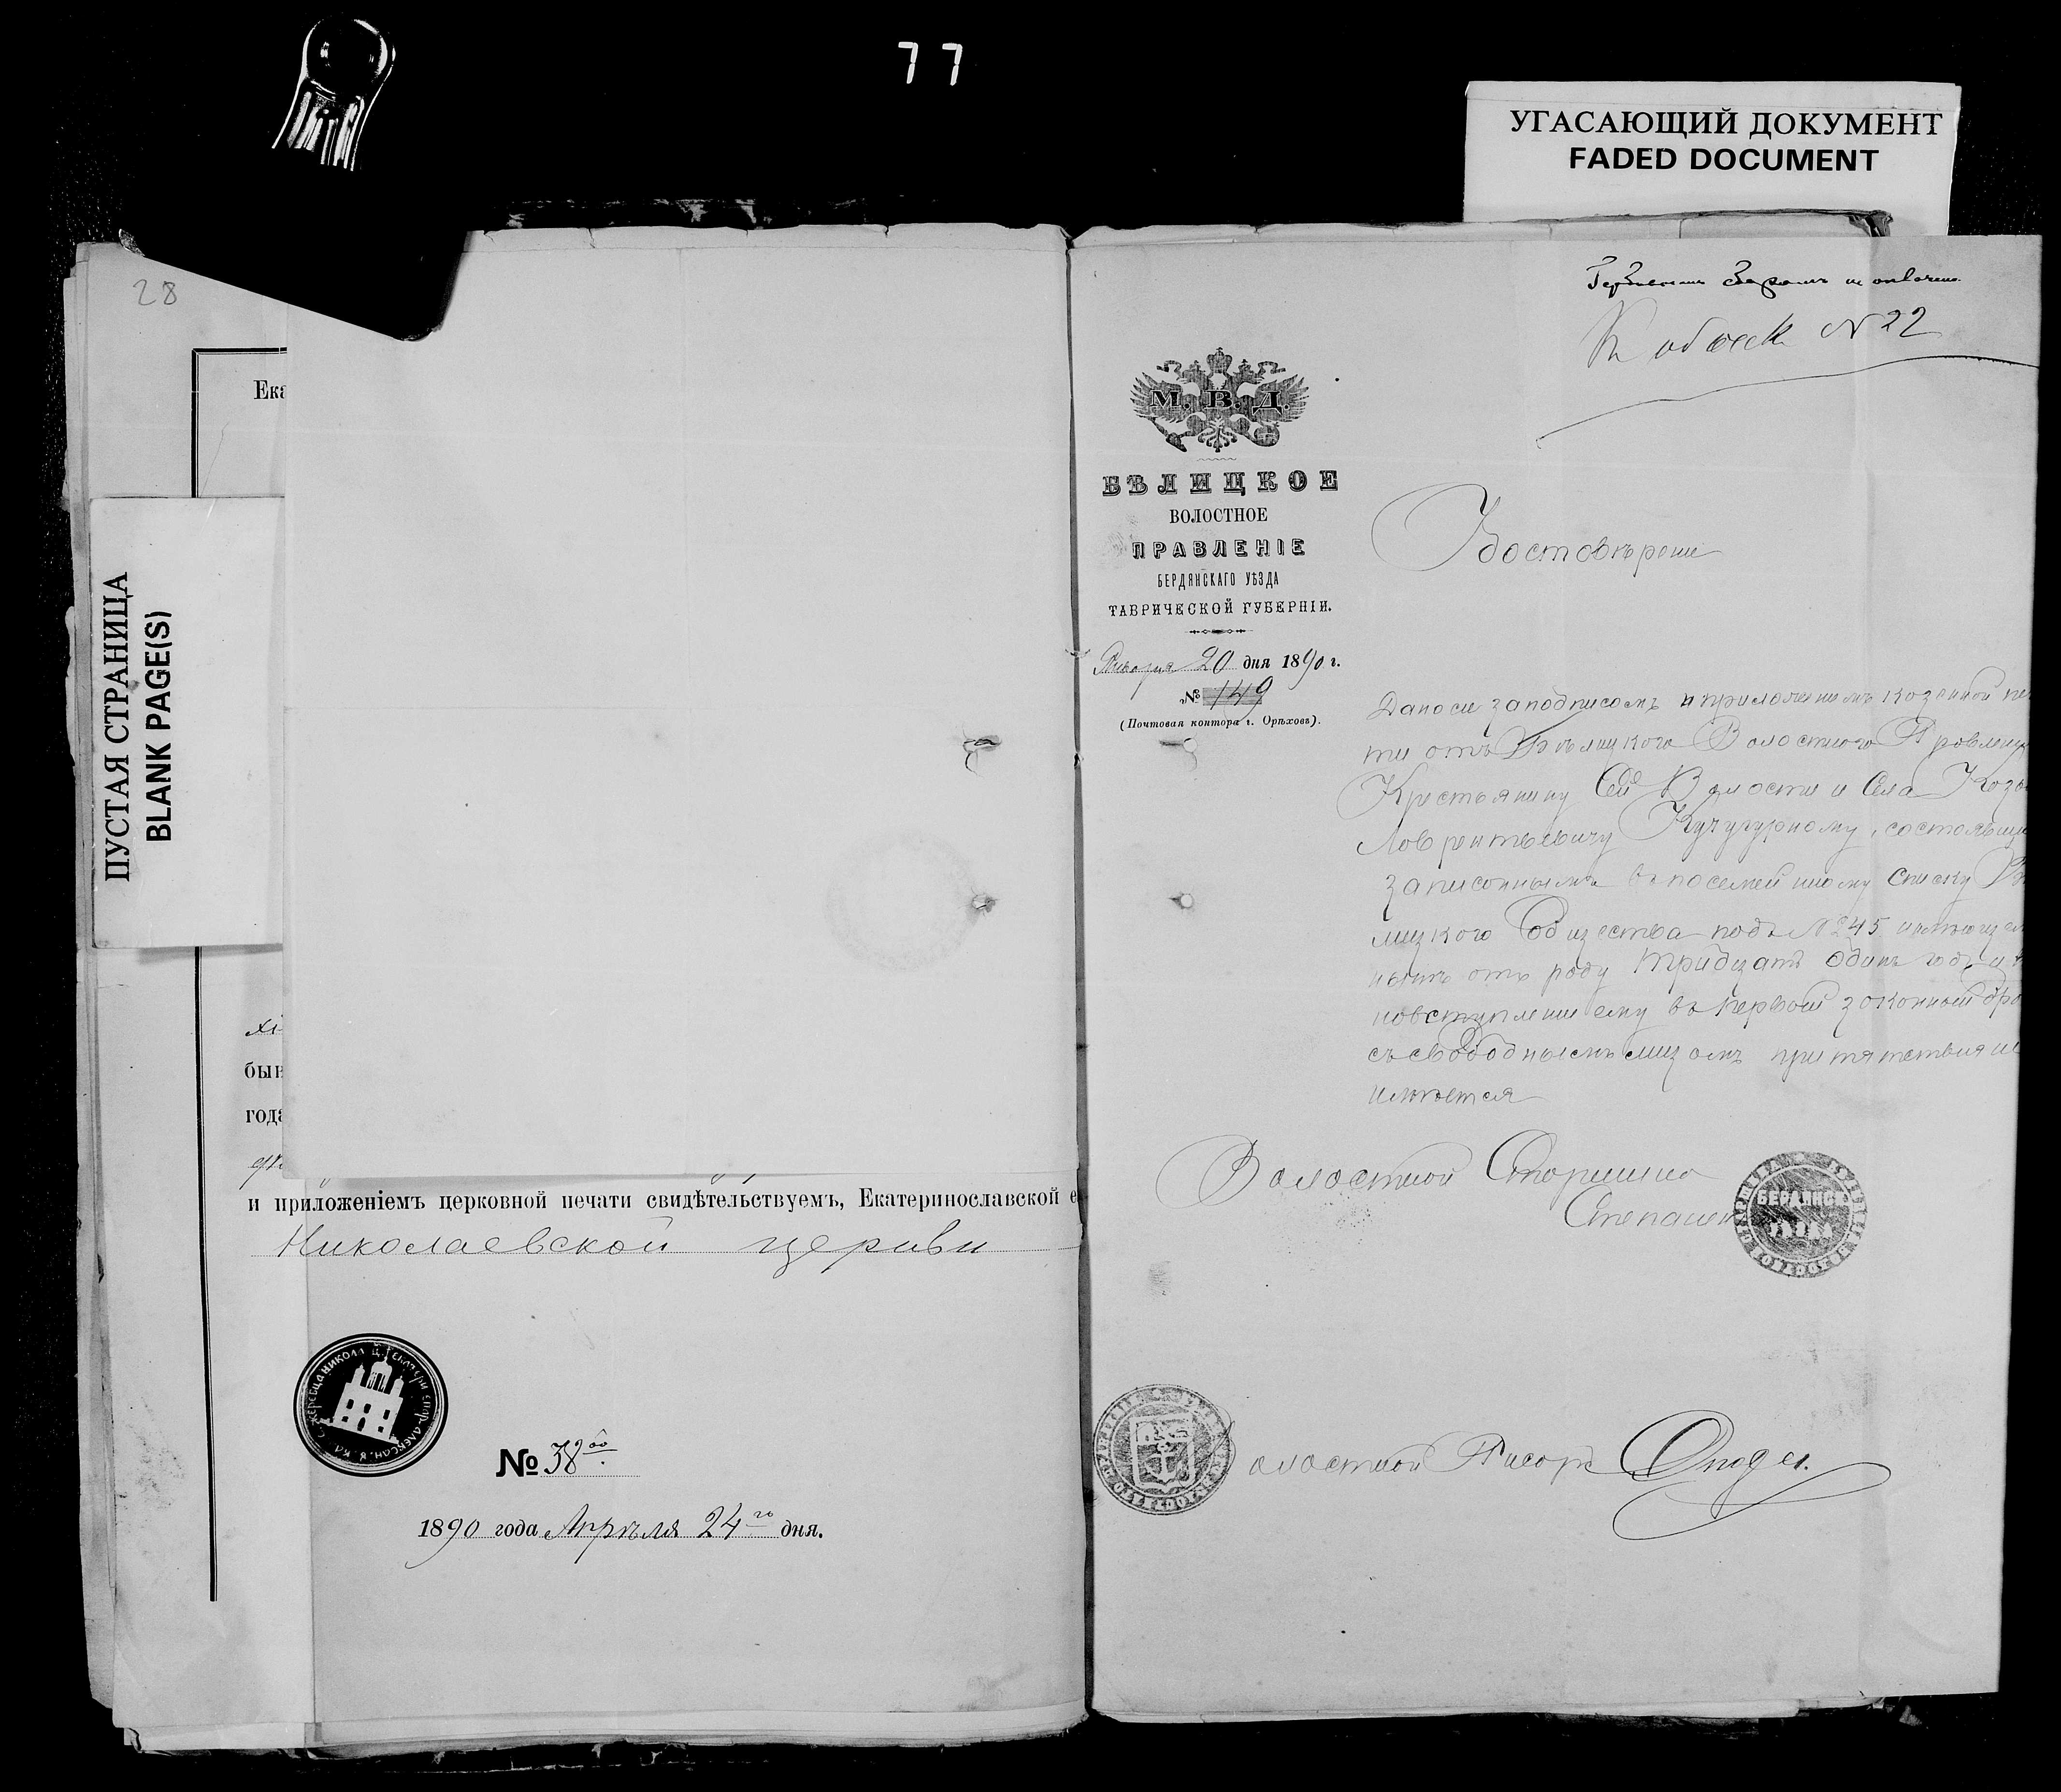 77
УГАСАЮЩИЙ ДОКУМЕНТ
FADED DOCUMENT
28
Ека
ПУСТАЯ СТРАНИЦА
BLANK PAGE(S)
бын
года
и приложеніемъ церковной печати свидѣтельствуемъ, Екатеринославской е
Николаевской церкви
№ 38
1890 года Апрѣля 24го дня.
№ 22
М. В. Д.
БѢЛИЦКОЕ
ВОЛОСТНОЕ
ПРАВЛЕНІЕ
БЕРДЯНСКАГО УѢЗДА
ТАВРИЧЕСКОЙ ГУБЕРНІИ.
Января 20 дня 1890 г.
№ 149
(Почтовая контора г. Орѣховъ).
Удостовѣреніе
Дано сіе заподписомъ и приложеніемъ козенной пе
ти отъ Бѣлицкого Волостного Провленія
Крестьянину Сей Волости и Села Козь
Лаврентьевичу Кучугурному, состоящ
записоннымъ въ посемейному списку Бѣ
лицкого Общества подъ № 245 имѣющем
нынѣ отъ роду тридцать одинъ годъ и
повступленіи ему въ первый зоконный бра
съ свободнымъ лицомъ препятствія не
имѣется
Волостной Старшина
Степанен
БЕРДЯНСК
УѢЗДА
Волостной Писорь